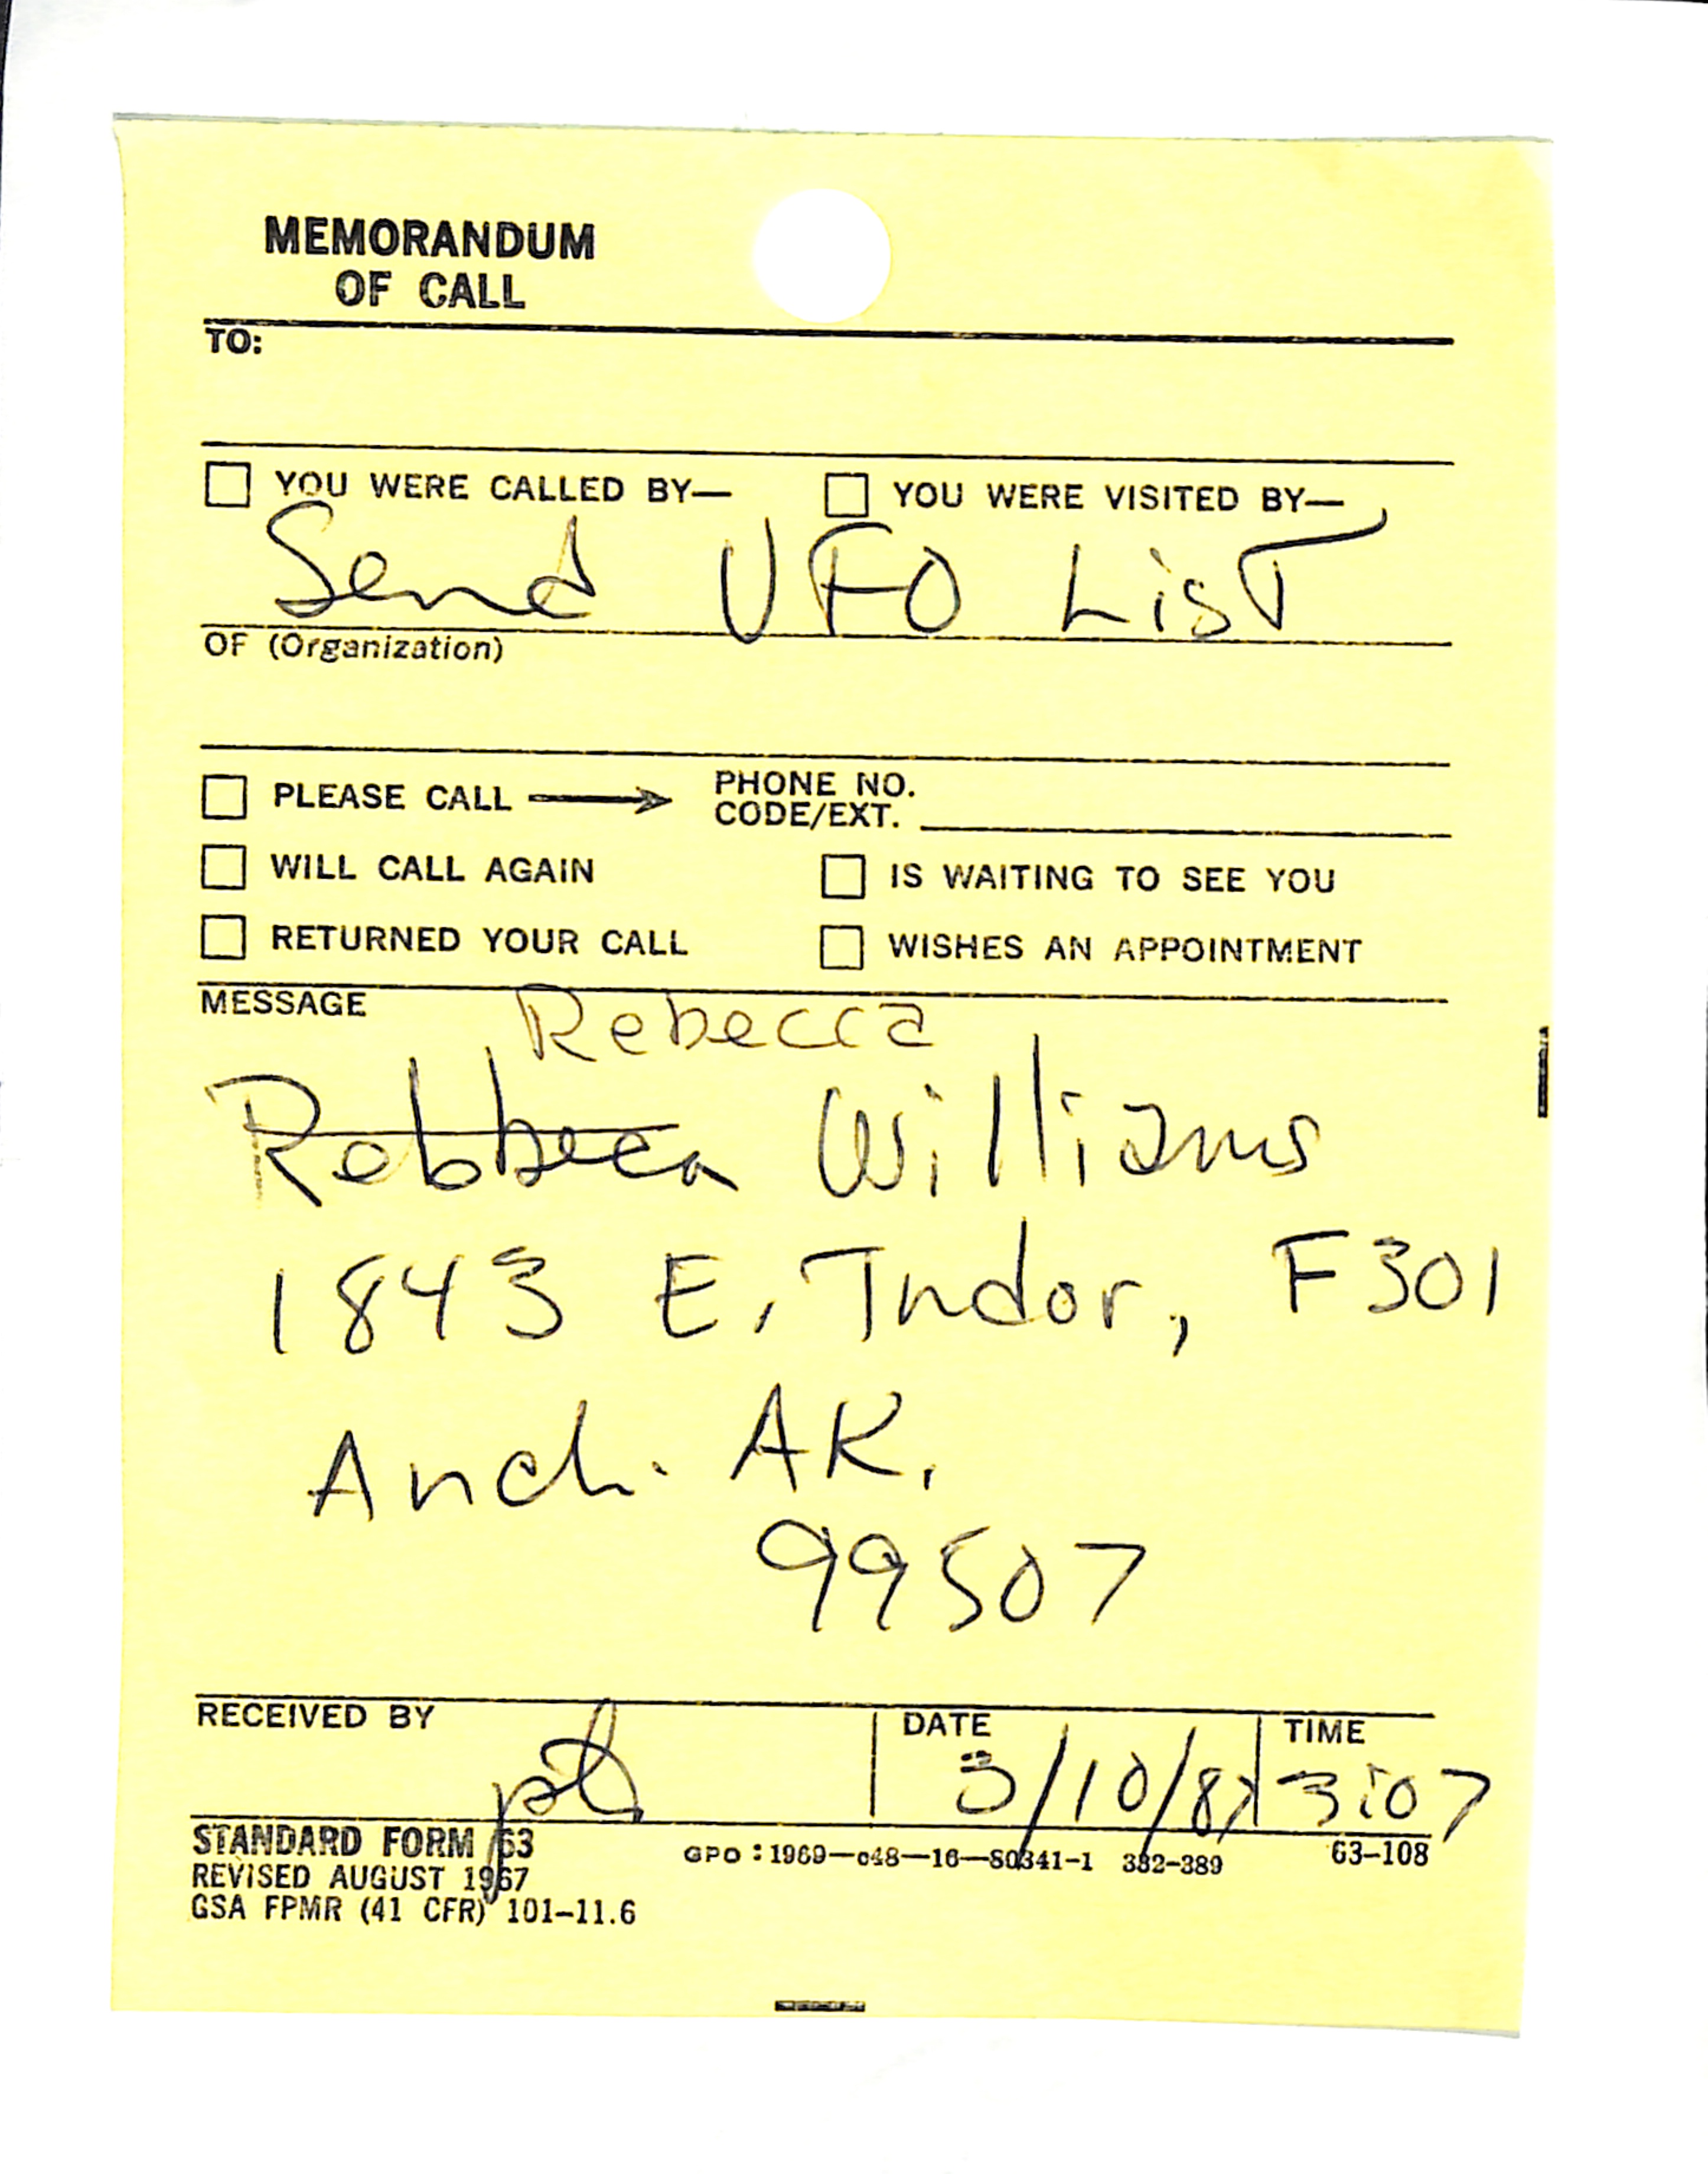 MEMORANDUM
OF CALL
TO:
YOU WERE CALLED BY— YOU WERE VISITED BY—
Send UFO List
OF (Organization)
PLEASE CALL → PHONE NO.
CODE/EXT.
WILL CALL AGAIN IS WAITING TO SEE YOU
RETURNED YOUR CALL WISHES AN APPOINTMENT
MESSAGE
Rebecca
Rebbeca Williams
1843 E. Tudor, F301
Anch. AK.
99507
RECEIVED BY DATE TIME
3/10/87 3:07
STANDARD FORM 63
REVISED AUGUST 1967
GSA FPMR (41 CFR) 101-11.6
GPO : 1969—c48—16—80341-1 332-389
63-108